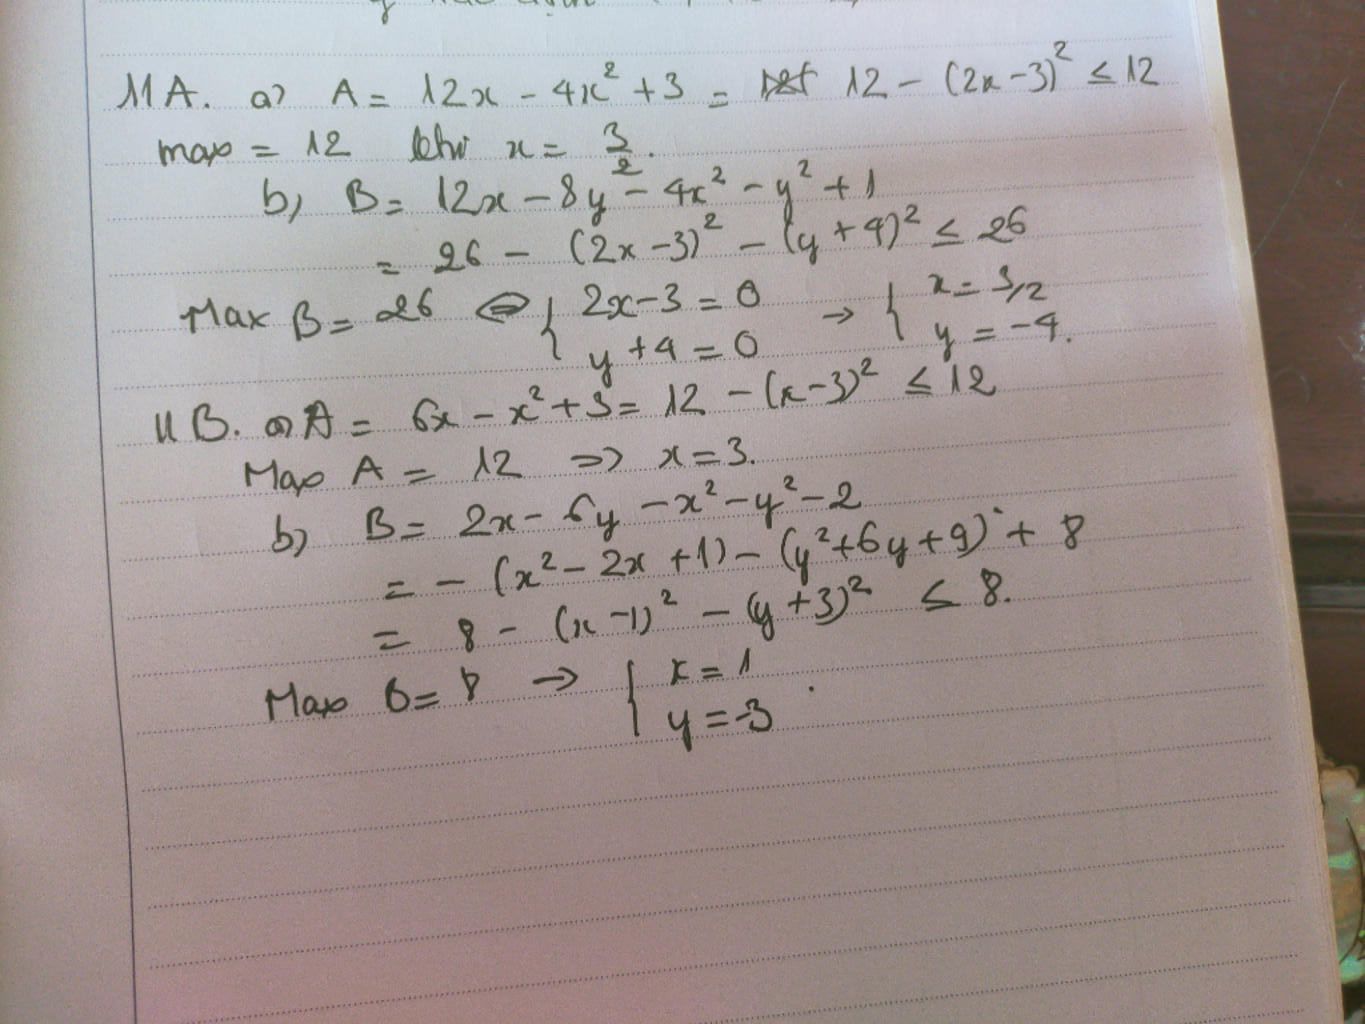 11A. a) A = 12x - 4x² + 3 = 12 - (2x - 3)² ≤ 12
max = 12 khi x = 3/2.
b) B = 12x - 8y - 4x² - y² + 1
= 26 - (2x - 3)² - (y + 4)² ≤ 26
Max B = 26 ⇔ { 2x - 3 = 0 → { x = 3/2
y + 4 = 0 y = -4.
11B. a) A = 6x - x² + 3 = 12 - (x - 3)² ≤ 12
Max A = 12 => x = 3.
b) B = 2x - 6y - x² - y² - 2
= - (x² - 2x + 1) - (y² + 6y + 9) + 8
= 8 - (x - 1)² - (y + 3)² ≤ 8.
Max B = 8 → { x = 1
y = -3